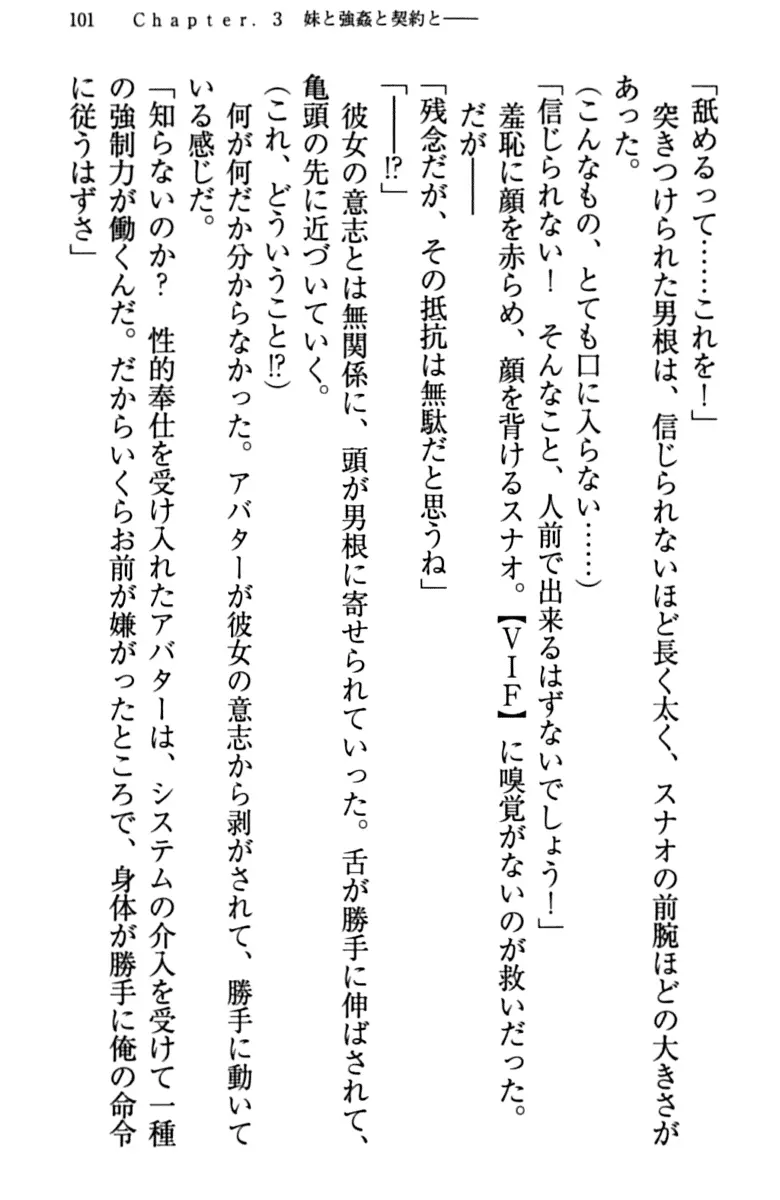 101　Chapter. 3　妹と強姦と契約と――
「舐めるって……これを！」
　突きつけられた男根は、信じられないほど長く太く、スナオの前腕ほどの大きさが
あった。
（こんなもの、とても口に入らない……）
「信じられない！　そんなこと、人前で出来るはずないでしょう！」
　羞恥に顔を赤らめ、顔を背けるスナオ。【ＶＩＦ】に嗅覚がないのが救いだった。
　だが――
「残念だが、その抵抗は無駄だと思うね」
「――!?」
　彼女の意志とは無関係に、頭が男根に寄せられていった。舌が勝手に伸ばされて、
亀頭の先に近づいていく。
（これ、どういうこと!?）
　何が何だか分からなかった。アバターが彼女の意志から剥がされて、勝手に動いて
いる感じだ。
「知らないのか？　性的奉仕を受け入れたアバターは、システムの介入を受けて一種
の強制力が働くんだ。だからいくらお前が嫌がったところで、身体が勝手に俺の命令
に従うはずさ」